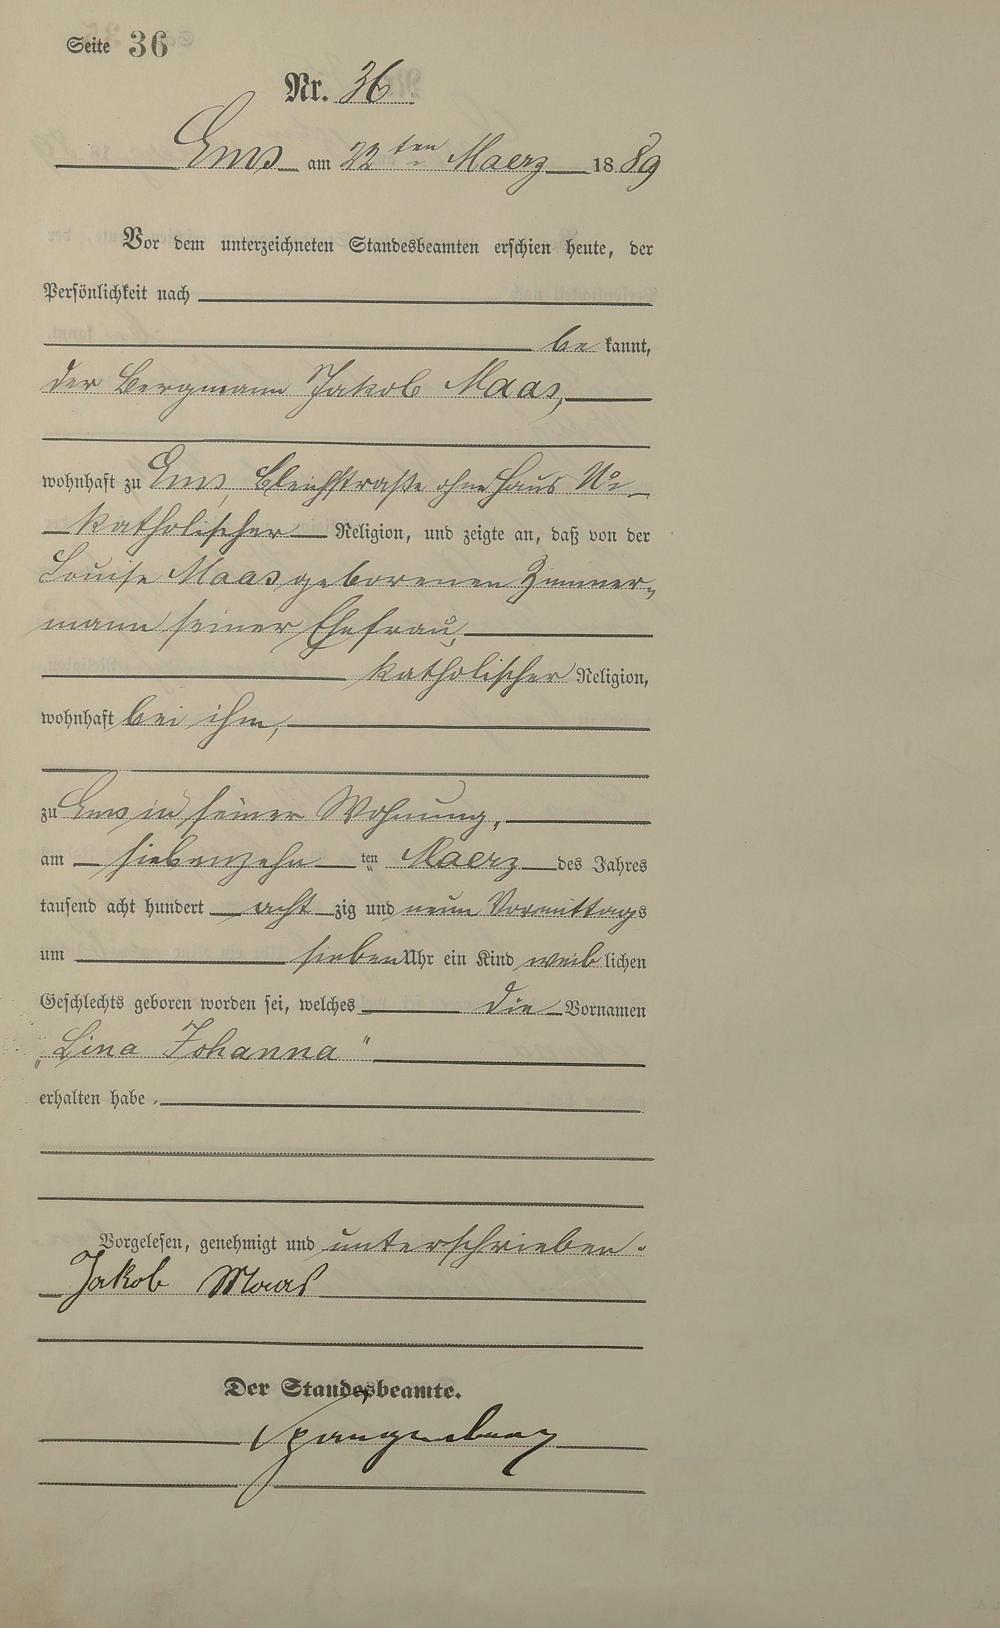 Seite 36
Nr. 36
Ems am 22ten Maerz 1889
Vor dem unterzeichneten Standesbeamten erschien heute, der
Persönlichkeit nach
be kannt,
der Bergmann Jakob Maas,
wohnhaft zu Ems, Bleichstraße ohne Haus No
katholischer Religion, und zeigte an, daß von der
Louise Maas geborenen Zimmer-
mann seiner Ehefrau,
katholischer Religion,
wohnhaft bei ihm,
zu Ems in seiner Wohnung,
am siebenzehn ten Maerz des Jahres
tausend acht hundert acht zig und neun Vormittags
um sieben Uhr ein Kind weib lichen
Geschlechts geboren worden sei, welches die Vornamen
„Lina Johanna"
erhalten habe.
Vorgelesen, genehmigt und unterschrieben.
Jakob Maas
Der Standesbeamte.
Spangenberg